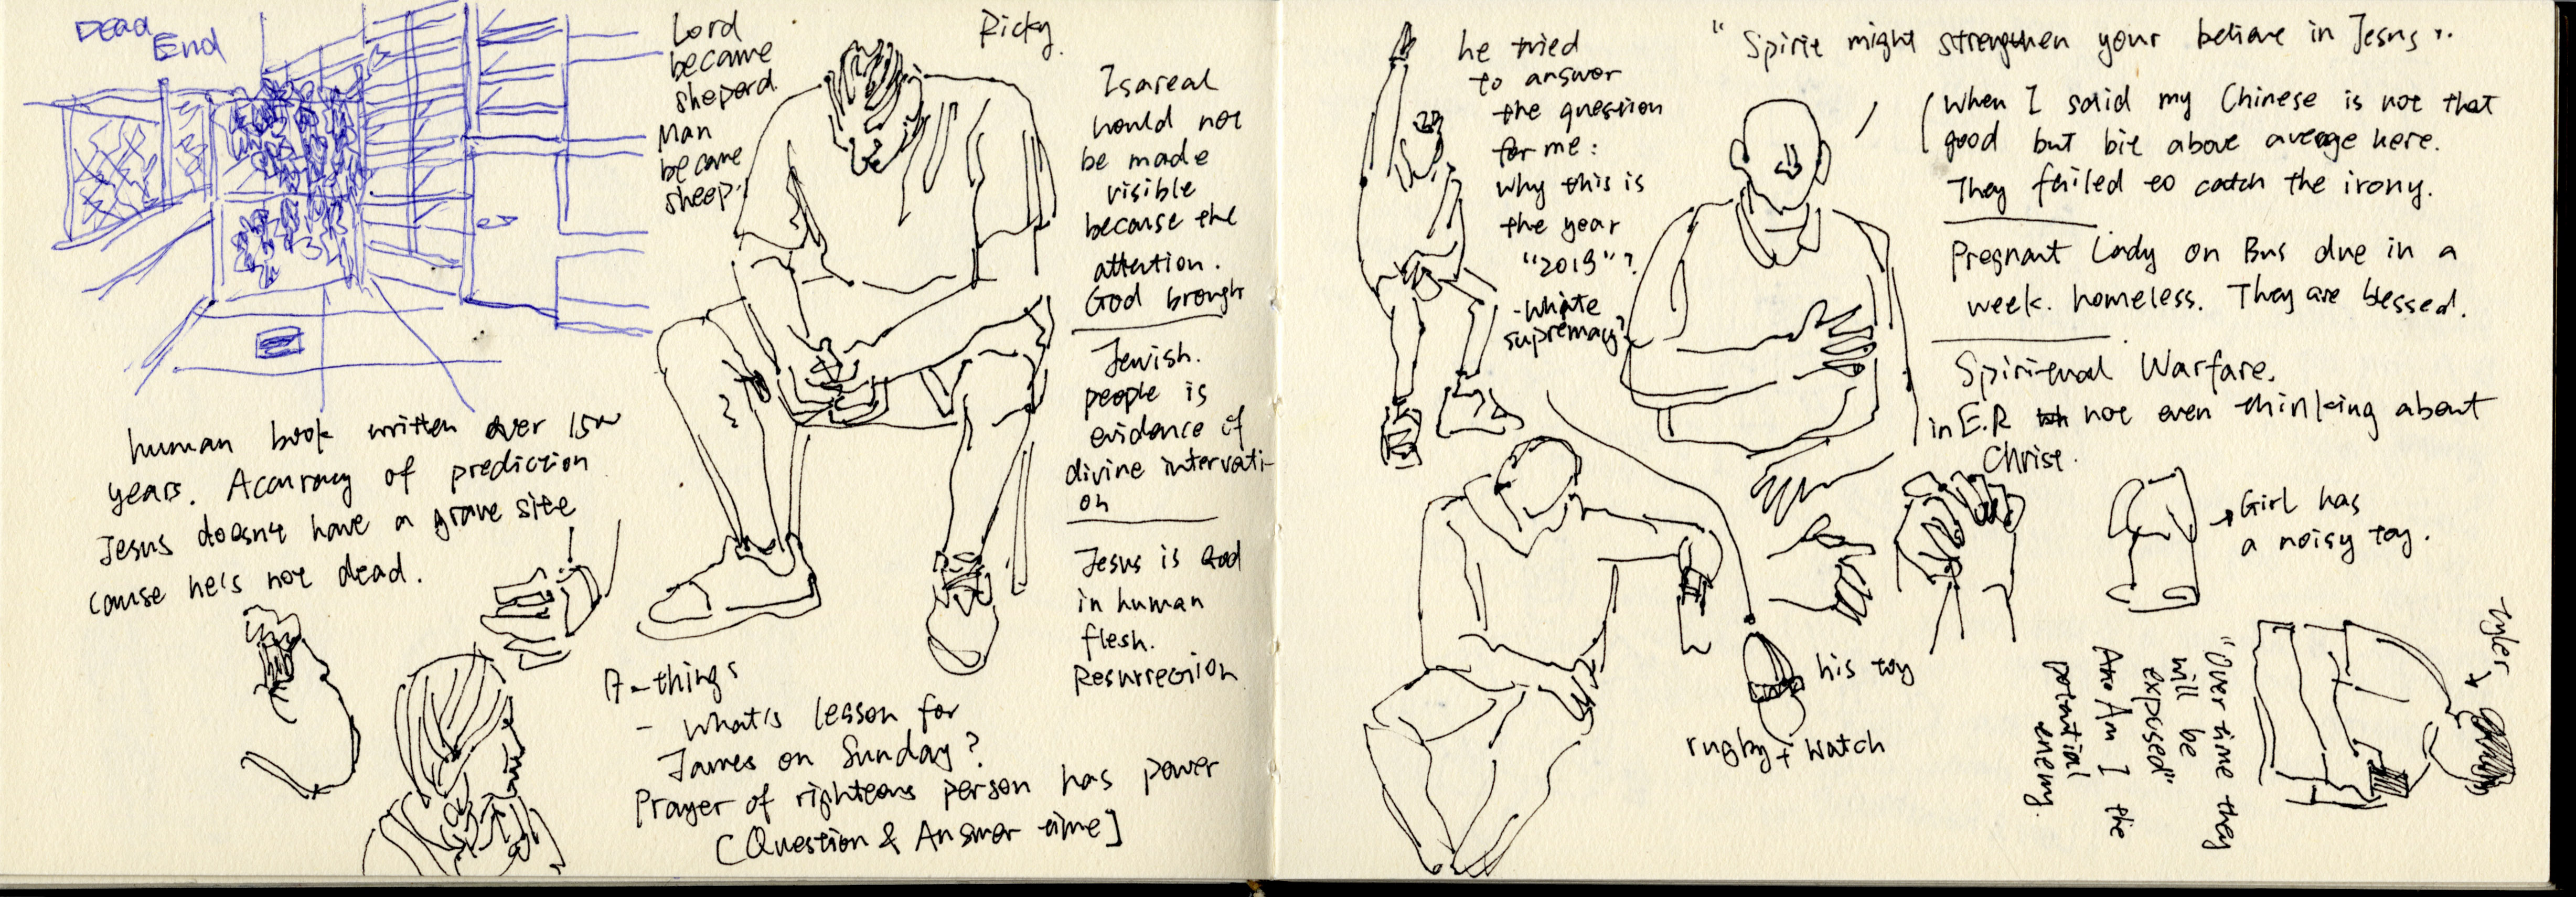 Dead
End
Lord
became
sheperd
Man
became
sheep.
Ricky
Isareal
would not
be made
visible
because the
attention.
God brought
Jewish.
people is
evidence of
divine intervati-
on
Jesus is God
in human
flesh.
Resurrection
human book written over 15
years. Accuracy of prediction
Jesus doesn't have a grave site
cause he's not dead.
7-things
- What's lesson for
James on Sunday?
Prayer of righteous person has power
[Question & Answer time]
he tried
to answer
the question
for me:
why this is
the year
"2019"?
-White
supremacy?
"Spirit might strengthen your believe in Jesus".
(When I said my Chinese is not that
good but bit above average here.
They failed to catch the irony.
Pregnant Lady on Bus due in a
week. homeless. They are blessed.
Spiritual Warfare.
in E.R not even thinking about
Christ.
→ Girl has
a noisy toy.
his toy
rugby + watch
-Tyler
"Over time they
will be
exposed"
Am I the
potential
enemy.